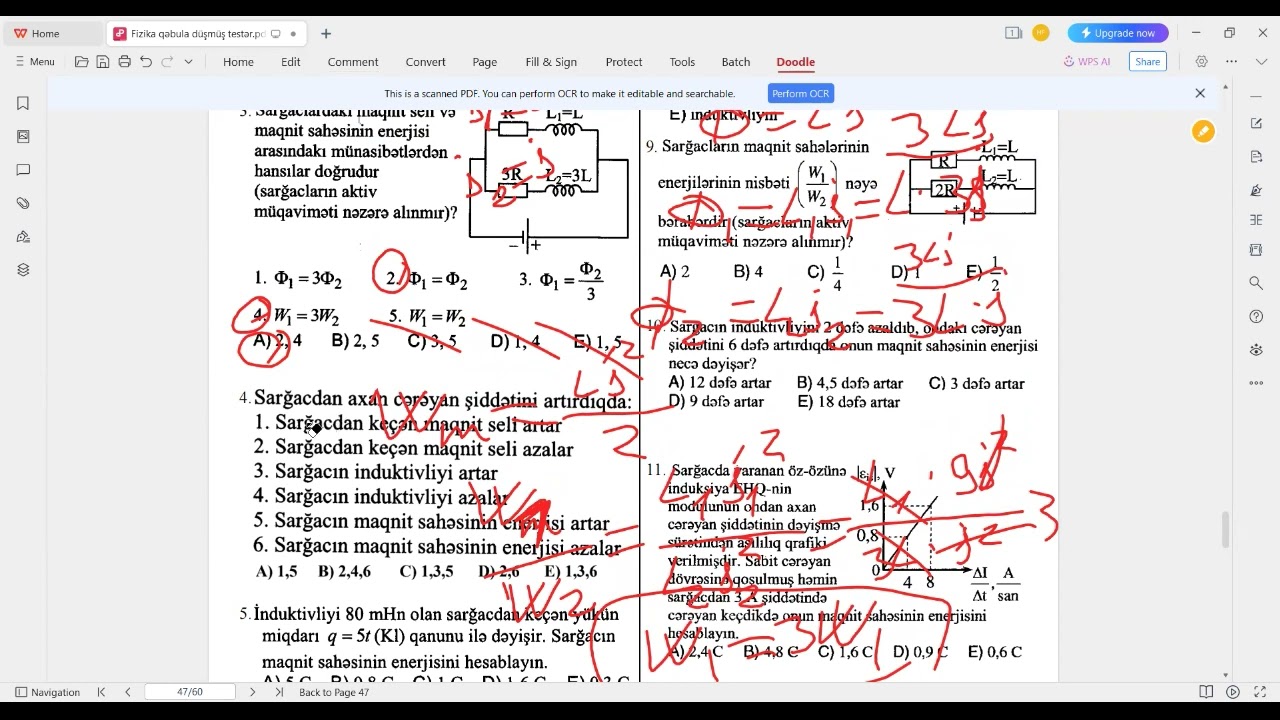 Home
Fizika qəbula düşmüş testər.pd
Upgrade now
Menu
Home Edit Comment Convert Page Fill & Sign Protect Tools Batch Doodle
WPS AI
Share
This is a scanned PDF. You can perform OCR to make it editable and searchable.
Perform OCR
3. Sarğaclardakı maqnit seli və
maqnit sahəsinin enerjisi
arasındakı münasibətlərdən
hansılar doğrudur
(sarğacların aktiv
müqaviməti nəzərə alınmır)?
R L₁=L
3R L₂=3L
− +
1. Φ₁ = 3Φ₂ 2. Φ₁ = Φ₂ 3. Φ₁ = Φ₂/3
4. W₁ = 3W₂ 5. W₁ = W₂
A) 2, 4 B) 2, 5 C) 3, 5 D) 1, 4 E) 1, 5
4. Sarğacdan axan cərəyan şiddətini artırdıqda:
1. Sarğacdan keçən maqnit seli artar
2. Sarğacdan keçən maqnit seli azalar
3. Sarğacın induktivliyi artar
4. Sarğacın induktivliyi azalar
5. Sarğacın maqnit sahəsinin enerjisi artar
6. Sarğacın maqnit sahəsinin enerjisi azalar
A) 1,5 B) 2,4,6 C) 1,3,5 D) 2,6 E) 1,3,6
5. İnduktivliyi 80 mHn olan sarğacdan keçən yükün
miqdarı q = 5t (Kl) qanunu ilə dəyişir. Sarğacın
maqnit sahəsinin enerjisini hesablayın.
E) induktivliyin
9. Sarğacların maqnit sahələrinin
enerjilərinin nisbəti (W₁/W₂) nəyə
bərabərdir (sarğacların aktiv
müqaviməti nəzərə alınmır)?
R L₁=L
2R L₂=L
A) 2 B) 4 C) 1/4 D) 1 E) 1/2
10. Sarğacın induktivliyini 2 dəfə azaldıb, ondakı cərəyan
şiddətini 6 dəfə artırdıqda onun maqnit sahəsinin enerjisi
necə dəyişər?
A) 12 dəfə artar B) 4,5 dəfə artar C) 3 dəfə artar
D) 9 dəfə artar E) 18 dəfə artar
11. Sarğacda yaranan öz-özünə
induksiya EHQ-nin
modulunun ondan axan
cərəyan şiddətinin dəyişmə
sürətindən asılılıq qrafiki
verilmişdir. Sabit cərəyan
dövrəsinə qoşulmuş həmin
sarğacdan 3 A şiddətində
cərəyan keçdikdə onun maqnit sahəsinin enerjisini
hesablayın.
, V
1,6
0,8
0 4 8 ΔI/Δt, A/san
A) 2,4 C B) 4,8 C C) 1,6 C D) 0,9 C E) 0,6 C
W₁ = 3W
Navigation
47/60
Back to Page 47